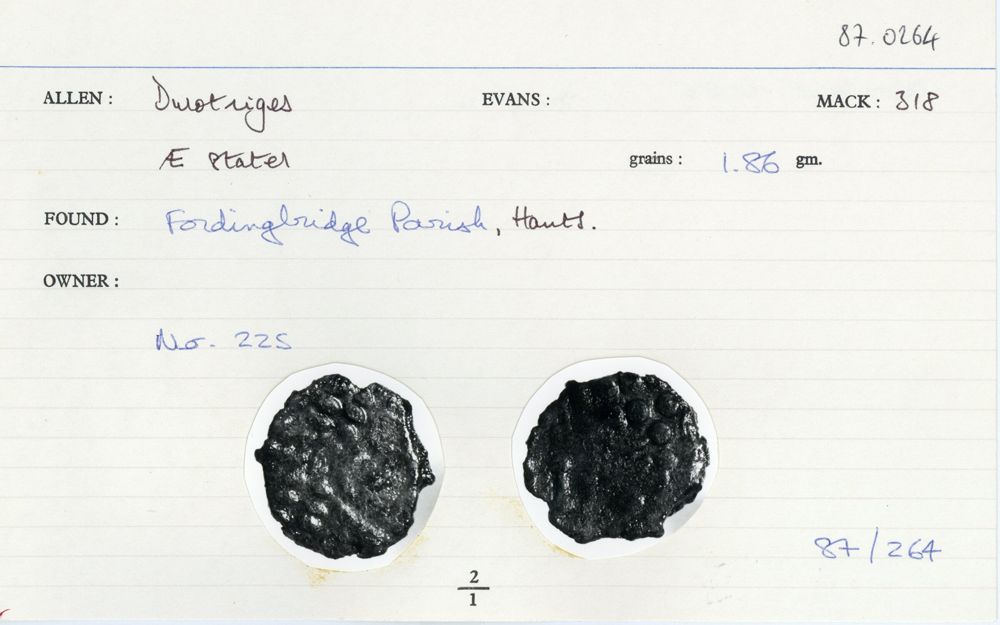 87.0264
ALLEN : Durotriges EVANS : MACK : 318
Æ stater grains : 1.86 gm.
FOUND : Fordingbridge Parish, Hants.
OWNER :
No. 225
87/264
2
1